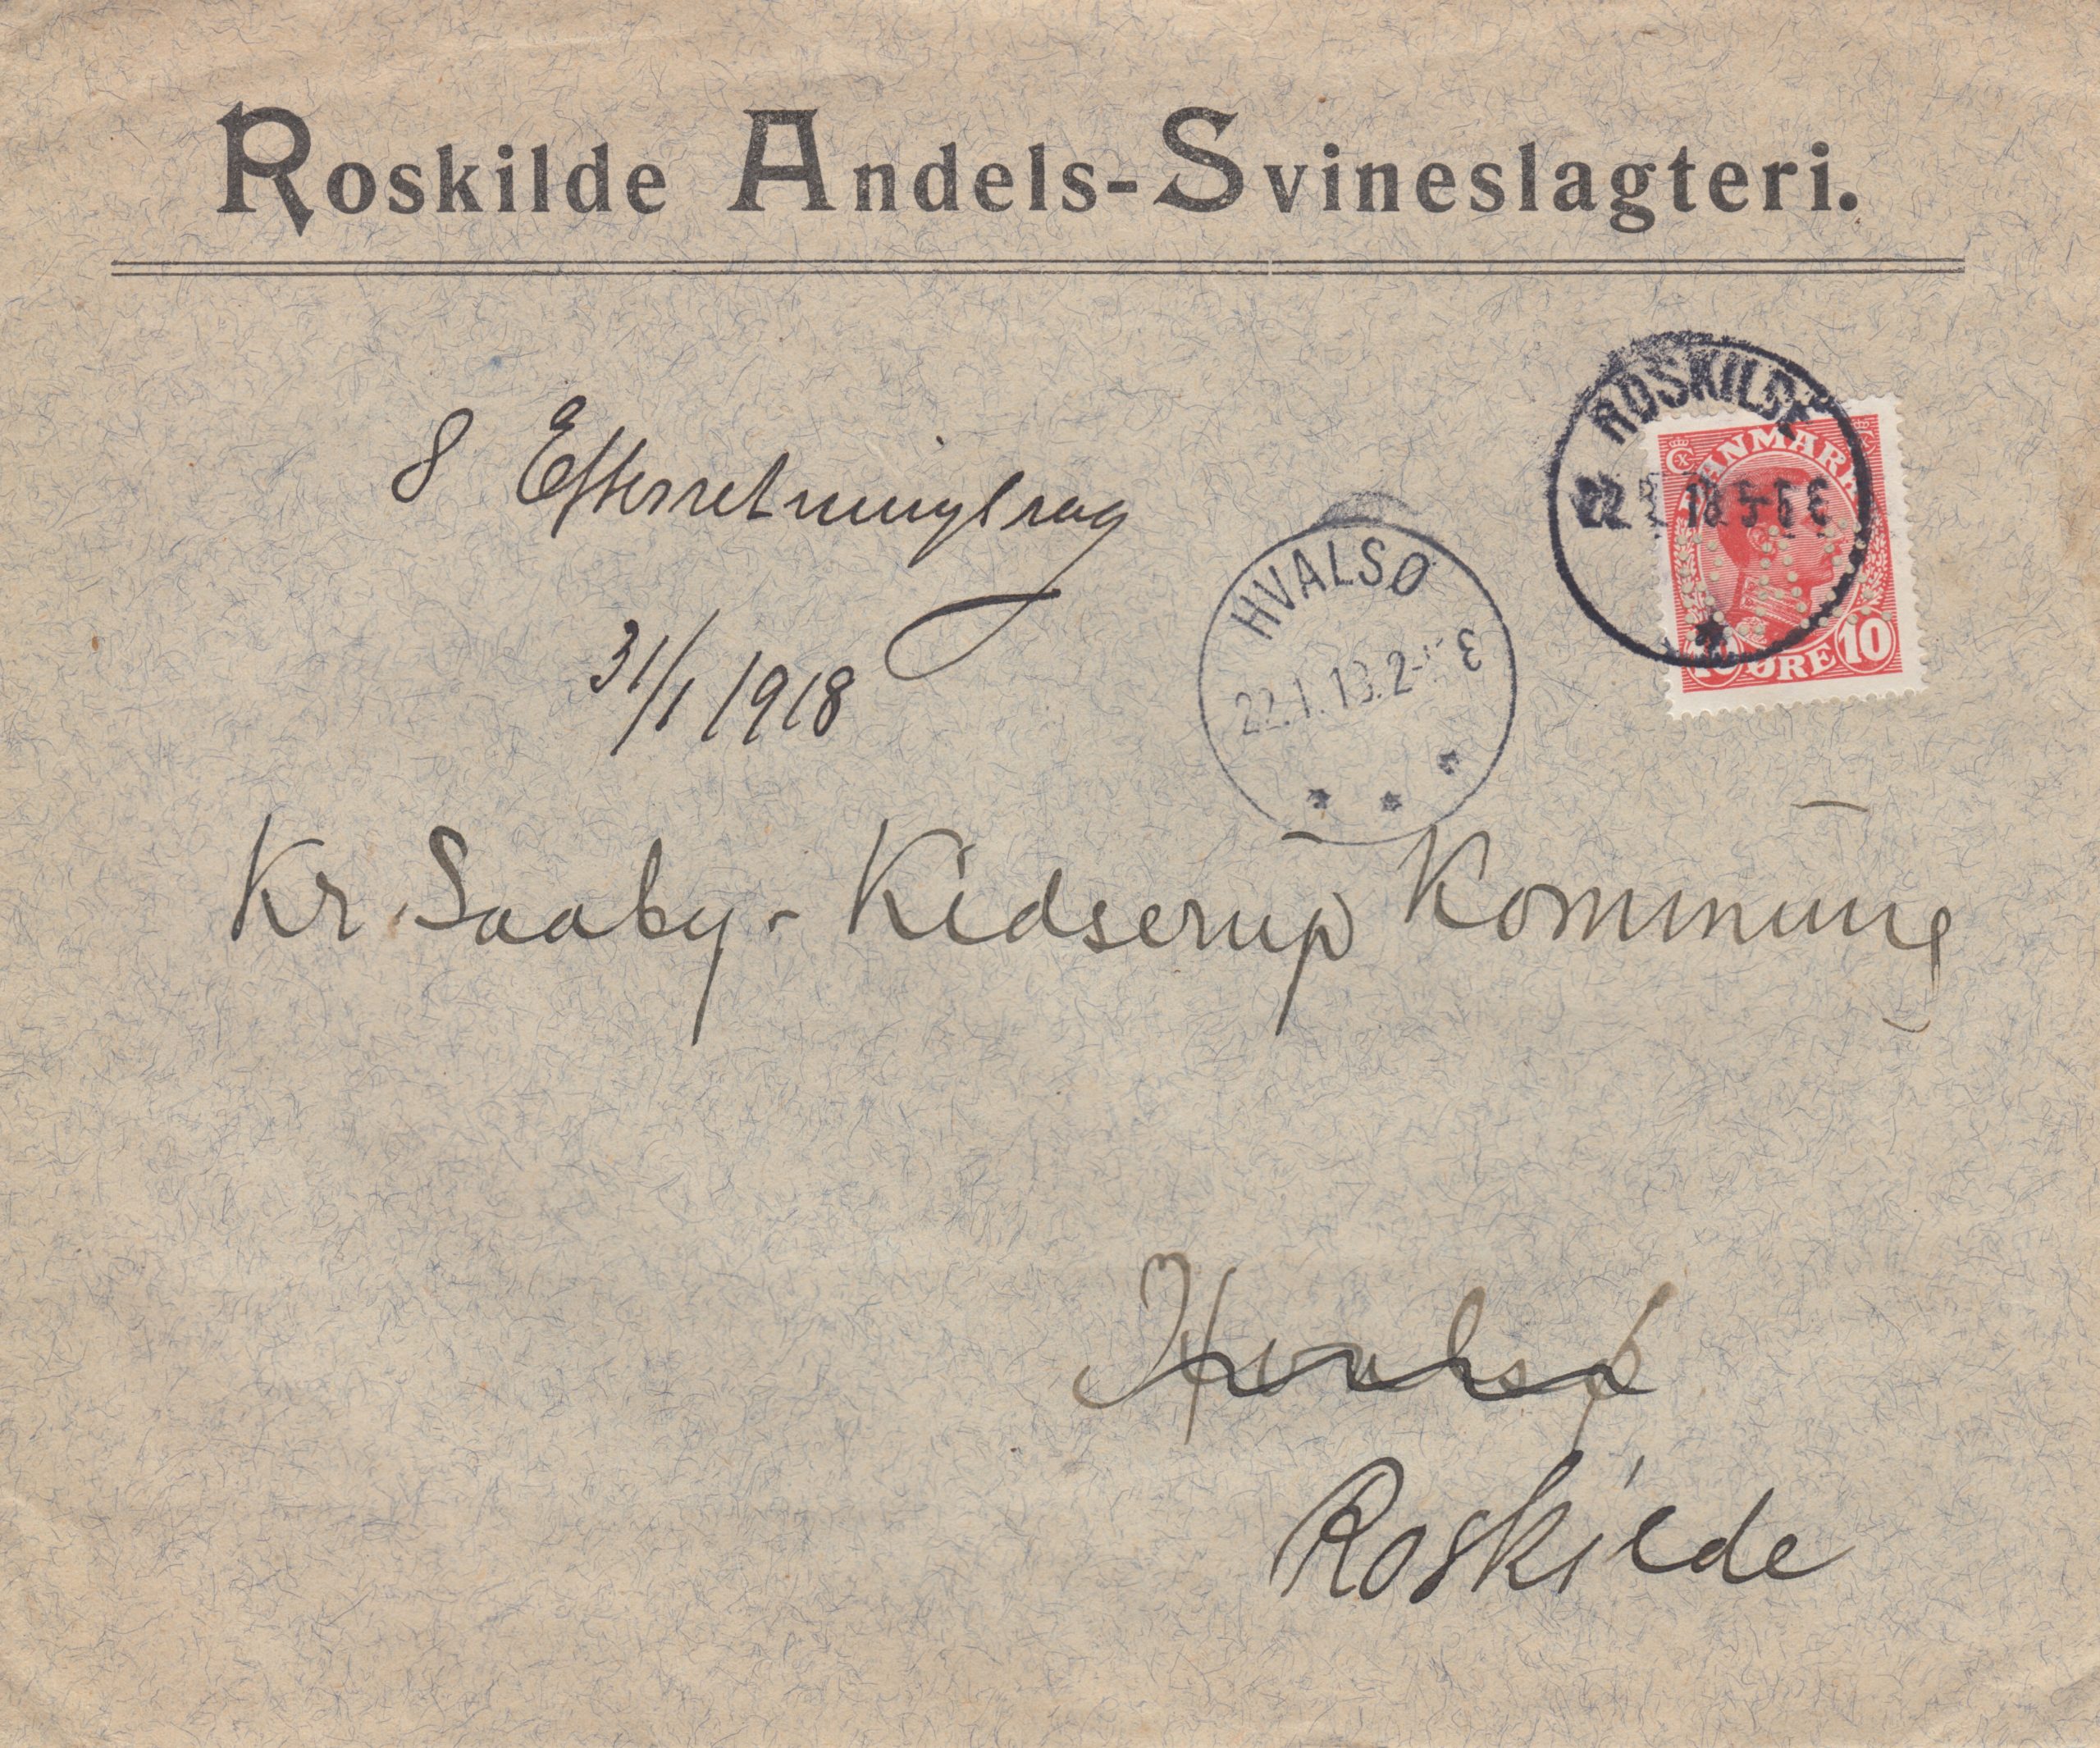 Roskilde Andels-Svineslagteri.
ROSKILDE
22 18 5-6 E
DANMARK
10 ØRE 10
8 Efterretningssag
31/1 1918
HVALSØ
22.1.18.2- E
Kr. Saaby - Kidserup Kommune
Hvalsø
Roskilde